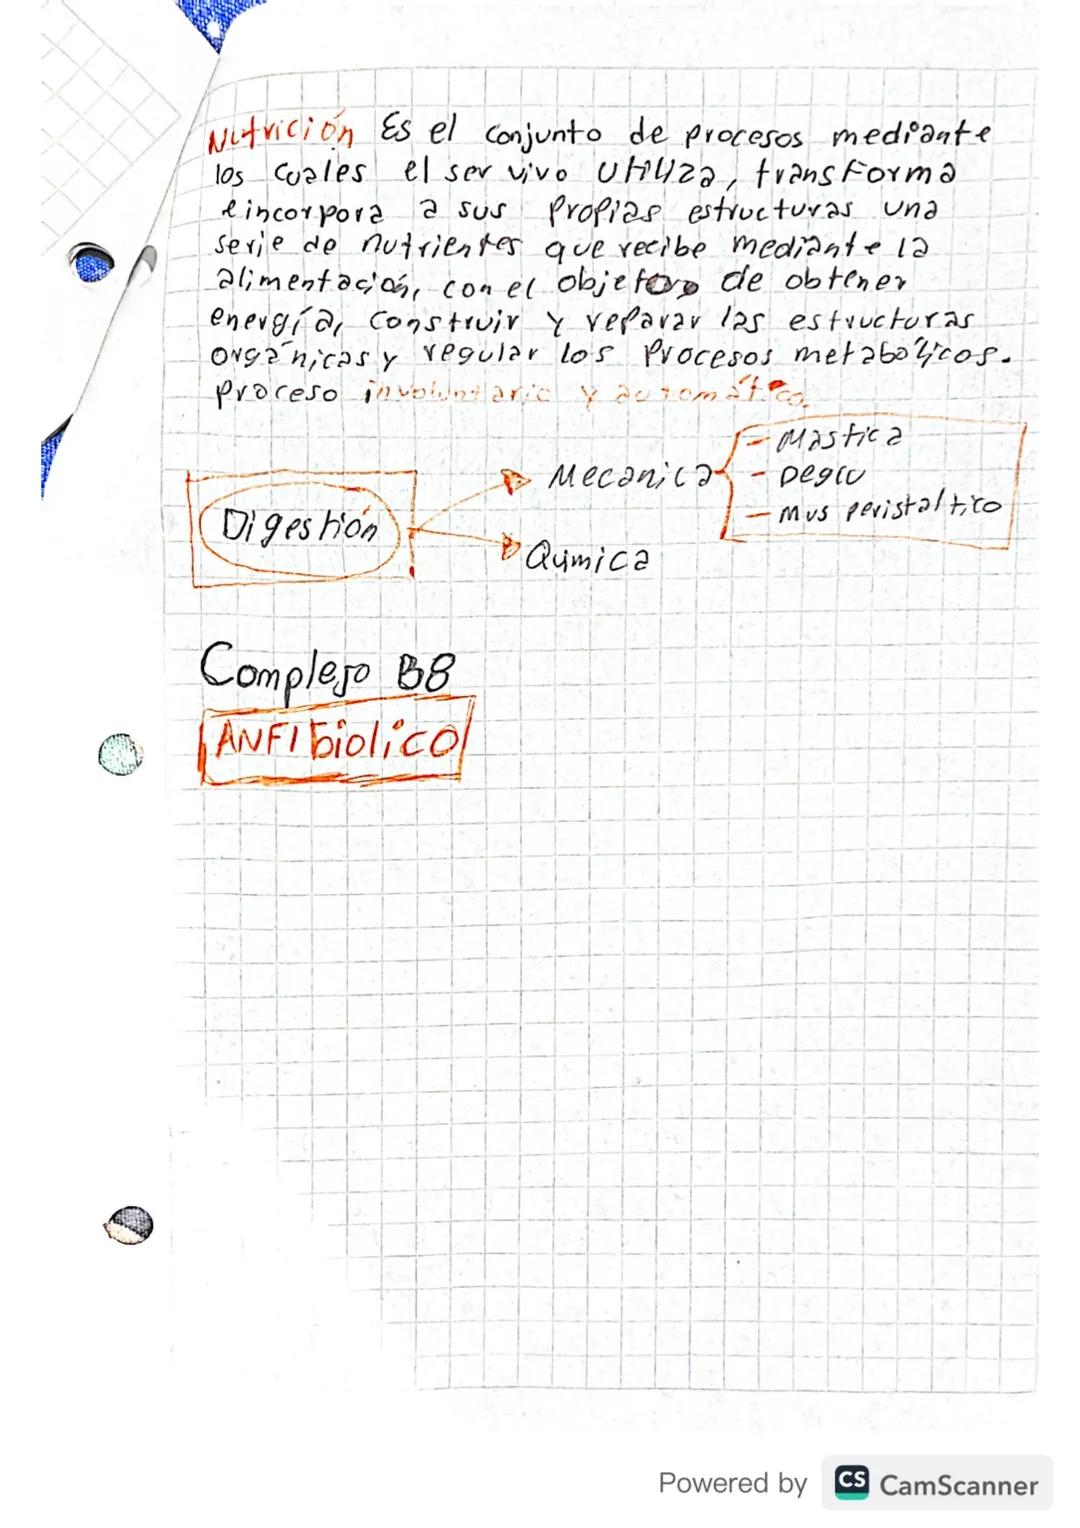 Nutrición Es el conjunto de procesos mediante
los cuales el ser vivo utiliza, transforma
e incorpora a sus propias estructuras una
serie de nutrientes que recibe mediante la
alimentación, con el objetoro de obtener
energía, construir y reparar las estructuras
orgánicas y regular los procesos metabólicos.
proceso involuntario y automático.
Digestión
Mecanica
- Mastica
- Deglu
- Mus peristaltico
Quimica
Complejo B8
ANFIbiolico
Powered by CS CamScanner